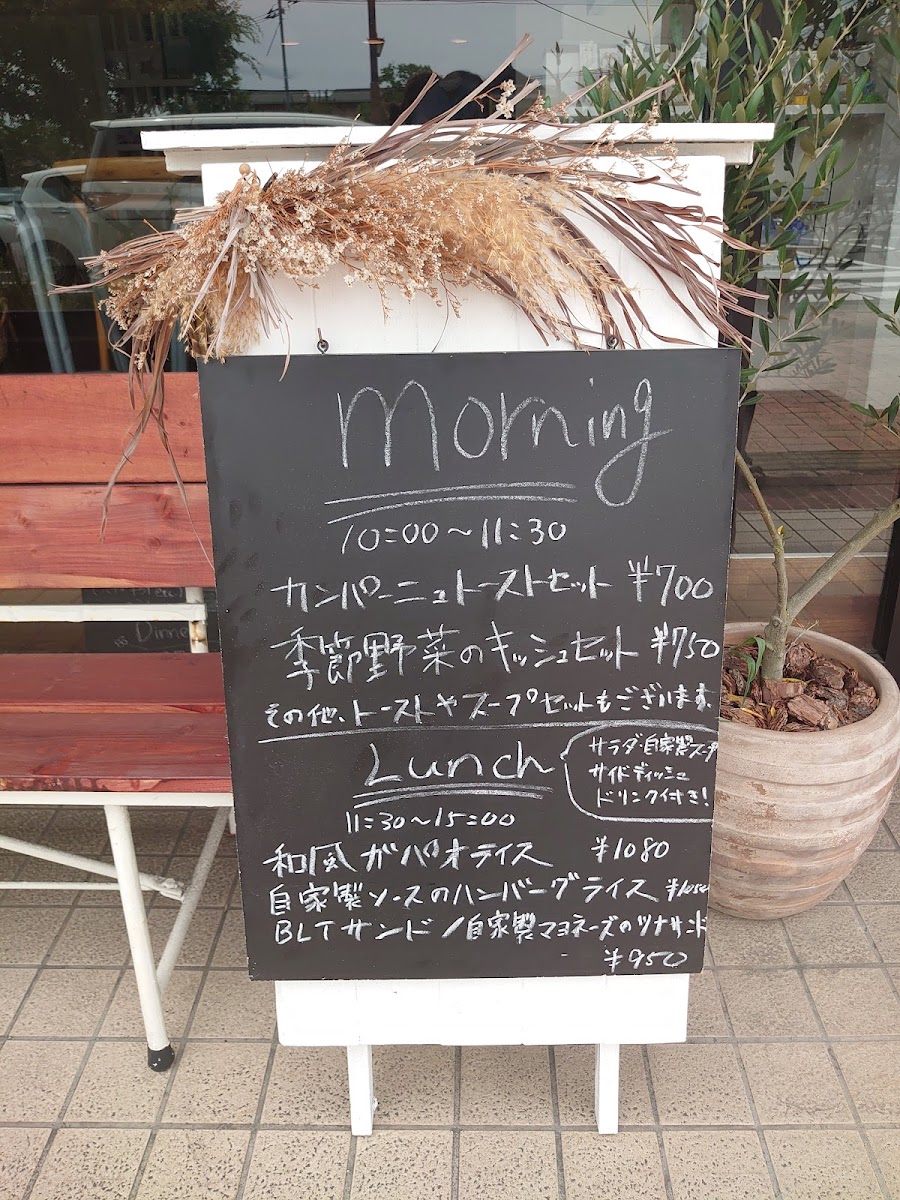 Morning
10:00～11:30
カンパーニュトーストセット ¥700
季節野菜のキッシュセット ¥750
その他、トーストやスープセットもございます。
Lunch
11:30～15:00
サラダ・自家製スープ
サイドディッシュ
ドリンク付き!
和風ガパオライス ¥1080
自家製ソースのハンバーグライス
BLTサンド/自家製マヨネーズのツナサンド
¥950
Dinner